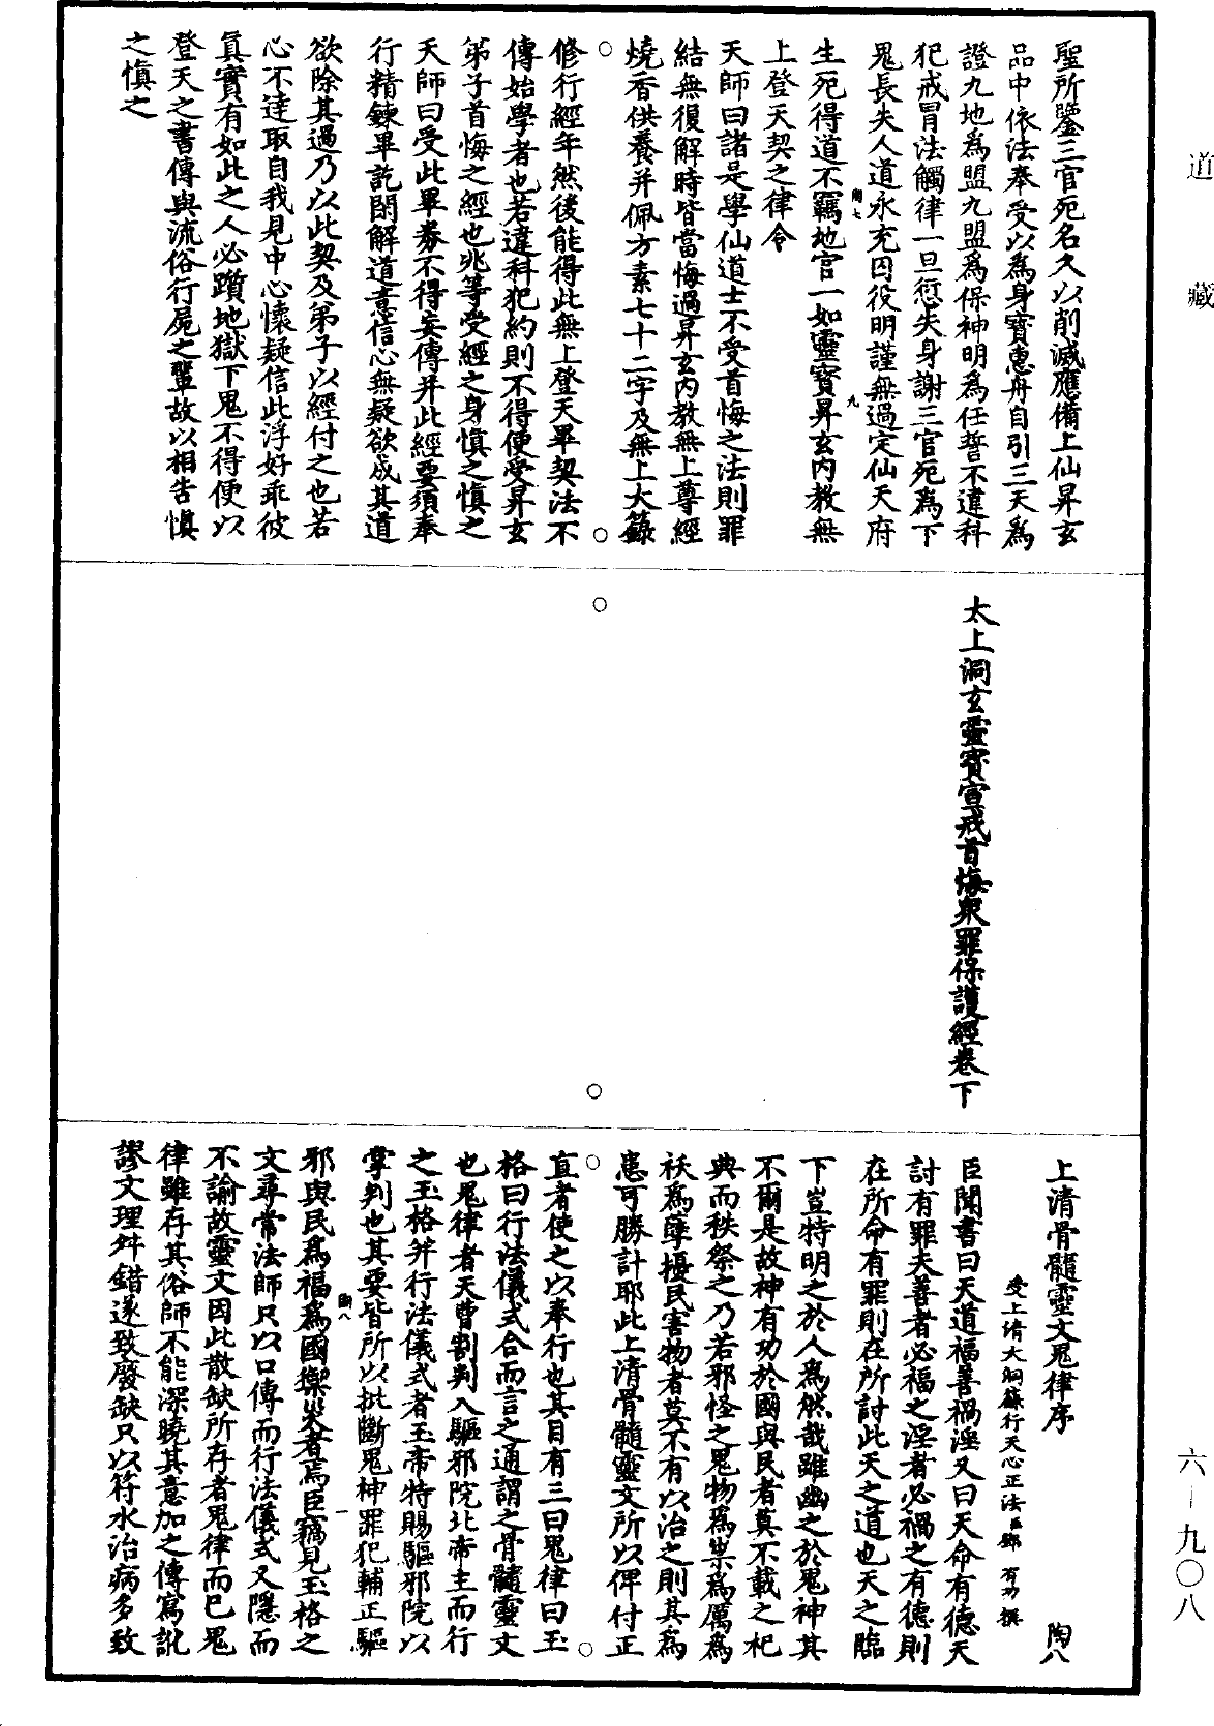 道藏
聖所鑒三官死名久以削滅應備上仙昇玄
品中依法奉受以為身寶惠舟自引三天為
證九地為盟九盟為保神明為任誓不違科
犯戒冒法觸律一旦愆失身謝三官死為下
鬼長失人道永充囚役明謹無過定仙天府
陶七
九
生死得道不羈地官一如靈寶昇玄內教無
上登天契之律令
天師曰諸是學仙道士不受首悔之法則罪
結無復解時皆當悔過昇玄內教無上尊經
燒香供養并佩方素七十二字及無上大籙
修行經年然後能得此無上登天畢契法不
傳始學者也若違科犯約則不得便受昇玄
弟子首悔之經也兆等受經之身慎之慎之
天師曰受此畢券不得妄傳并此經要須奉
行精鍊畢訖閑解道意信心無疑欲成其道
欲除其過乃以此契及弟子以經付之也若
心不達取自我見中心懷疑信此浮好乖彼
真實有如此之人必躓地獄下鬼不得便以
登天之書傳與流俗行屍之輩故以相告慎
之慎之
太上洞玄靈寶宣戒首悔眾罪保護經卷下
上清骨髓靈文鬼律序
陶八
受上清大洞籙行天心正法臣鄧有功撰
臣聞書曰天道福善禍淫又曰天命有德天
討有罪夫善者必福之淫者必禍之有德則
在所命有罪則在所討此天之道也天之臨
下豈特明之於人為然哉雖幽之於鬼神其
不爾是故神有功於國與民者莫不載之祀
典而秩祭之乃若邪怪之鬼物為祟為厲為
祅為孽擾民害物者莫不有以治之則其為
惠可勝計耶此上清骨髓靈文所以俾付正
直者使之以奉行也其目有三曰鬼律曰玉
格曰行法儀式合而言之通謂之骨髓靈文
也鬼律者天曹割判入驅邪院北帝主而行
之玉格并行法儀式者玉帝特賜驅邪院以
掌判也其要皆所以批斷鬼神罪犯輔正驅
陶八
一
邪與民為福為國禦災者焉臣竊見玉格之
文尋常法師只以口傳而行法儀式又隱而
不諭故靈文因此散缺所存者鬼律而已鬼
律雖存其俗師不能深曉其意加之傳寫訛
謬文理舛錯遂致廢缺只以符水治病多致
六一九〇八